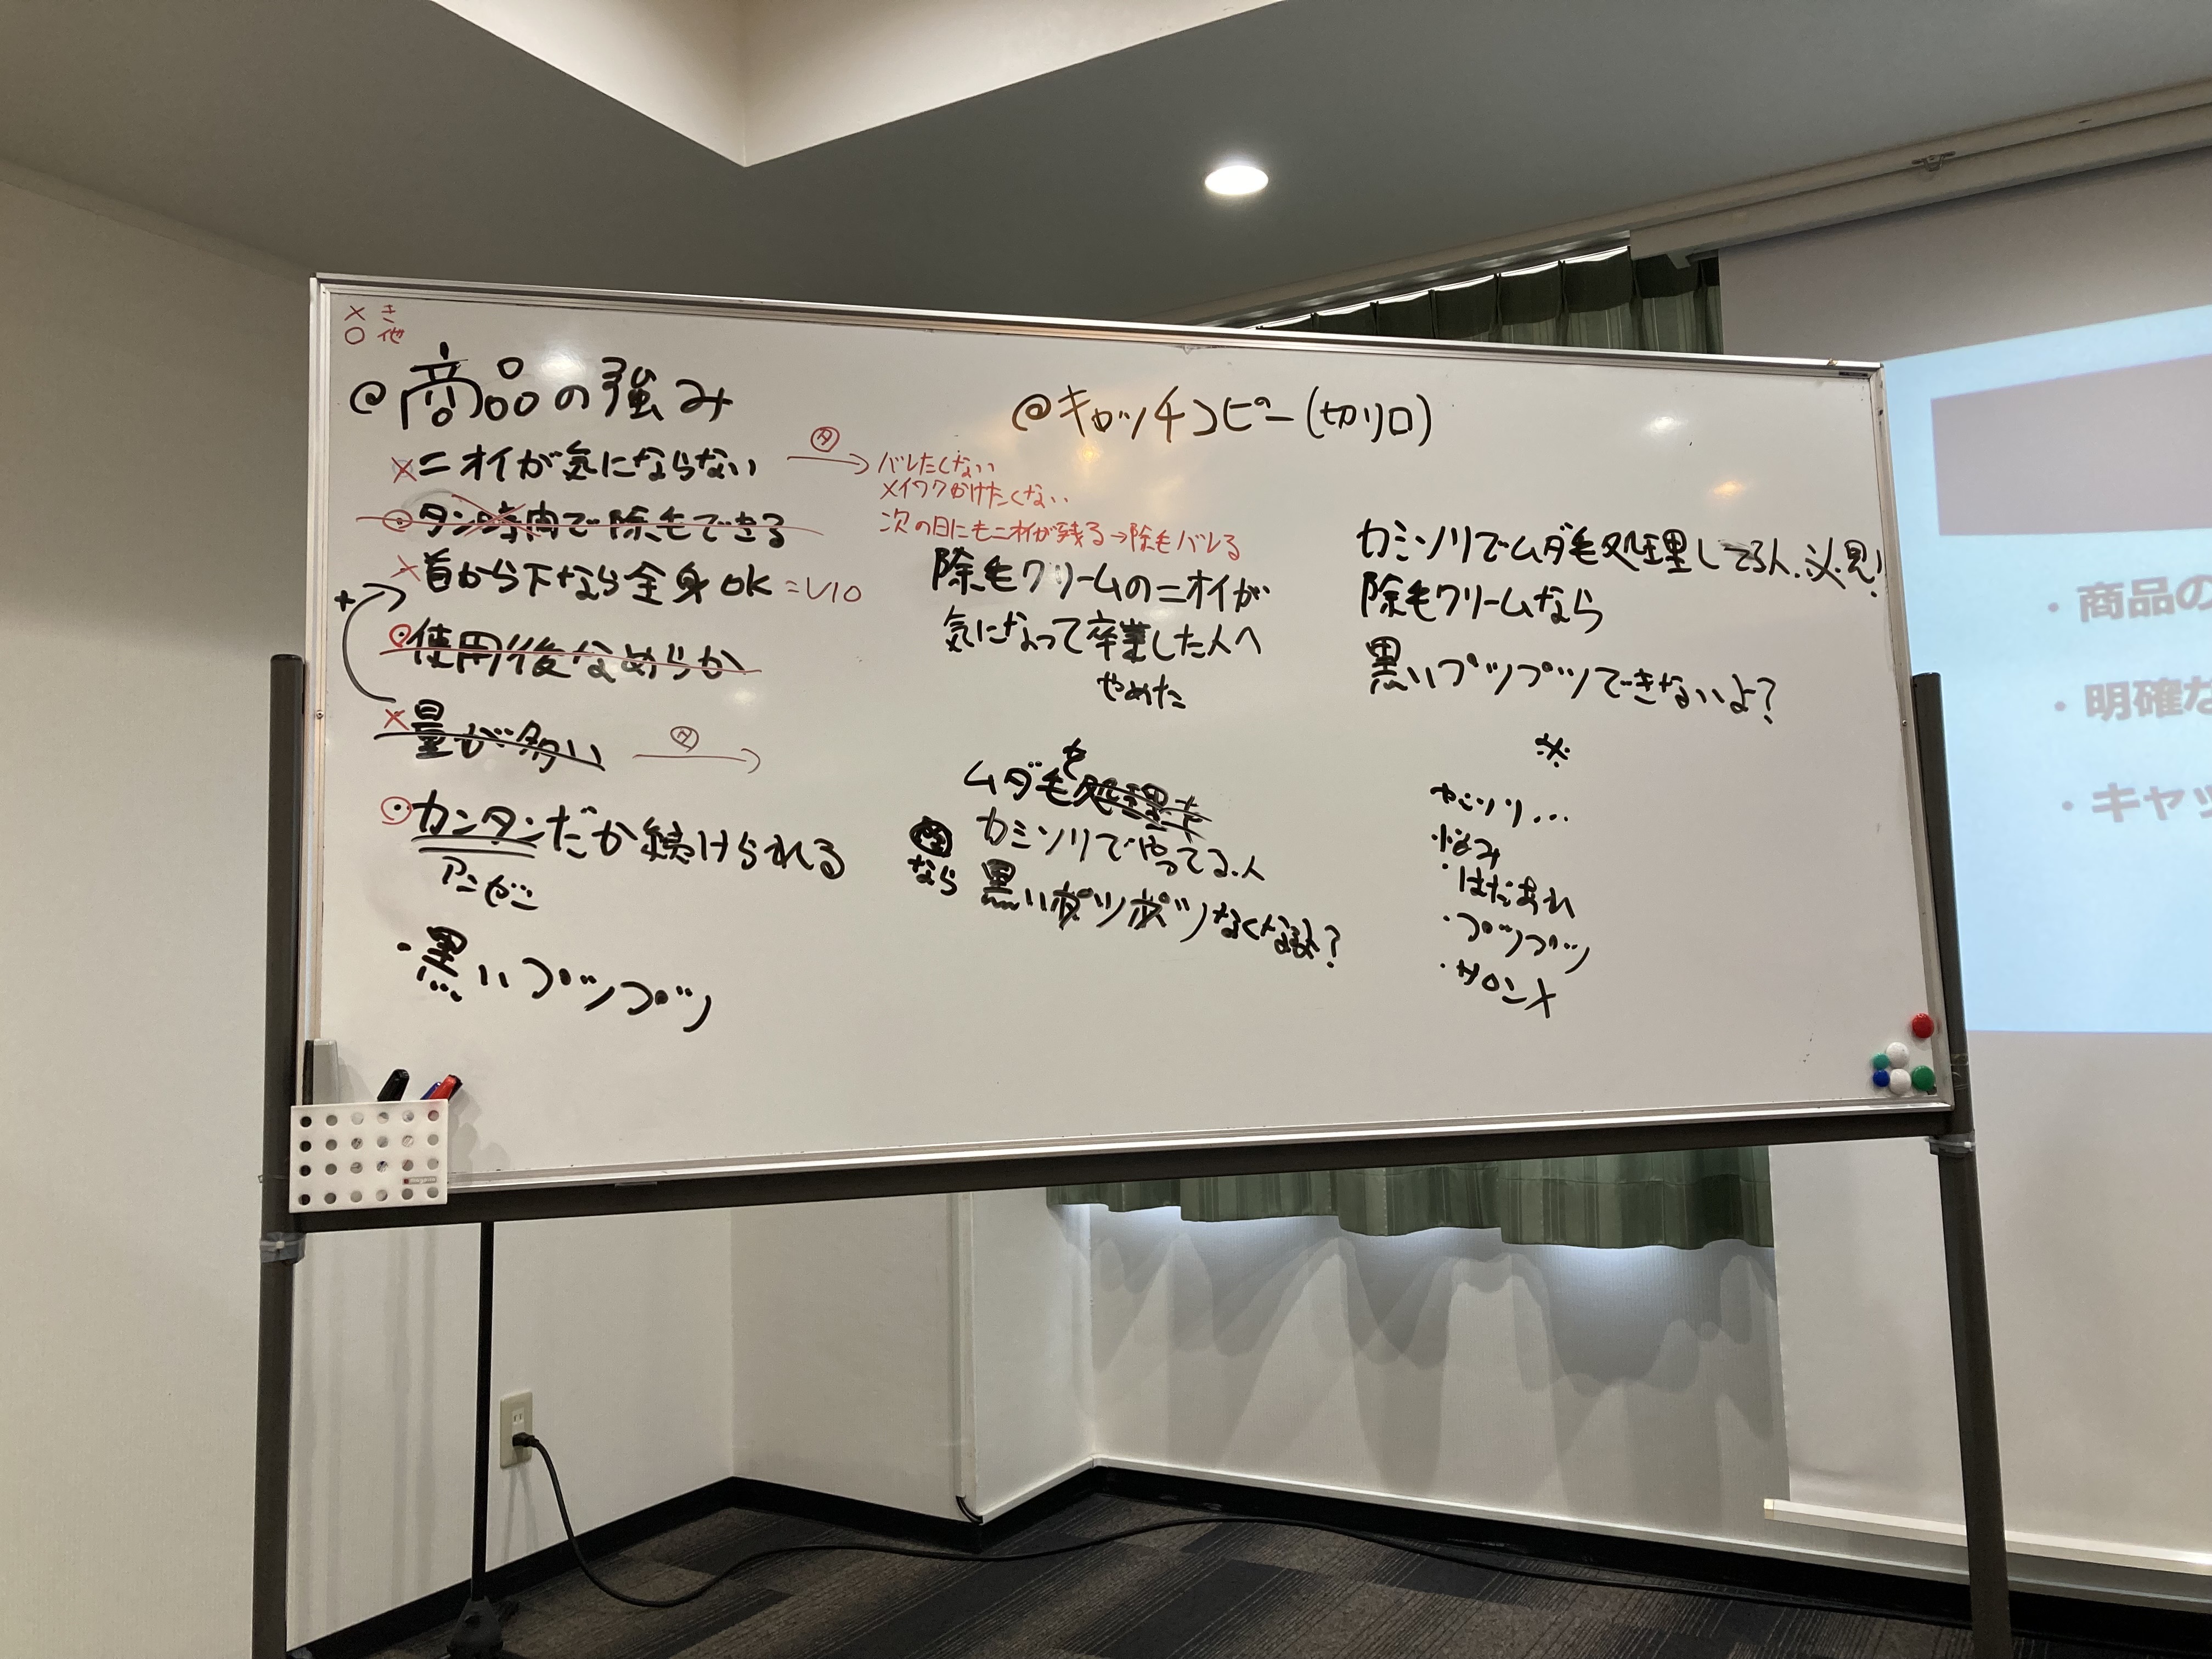 × き
○ 他
@商品の強み
×ニオイが気にならない
タン時間で除毛できる
×首から下なら全身OK =VIO
+
使用後なめらか
×量が多い
カンタンだから続けられる
アンゼン
・黒いプツプツ
@キャッチコピー(切り口)
バレたくない
メイワクかけたくない
次の日にもニオイが残る→除毛バレる
除毛クリームのニオイが
気になって卒業した人へ
やめた
ムダ毛を処理
カミソリでやってる人
なら
黒いポツポツなくな
カミソリでムダ毛処理してる人、必見!
除毛クリームなら
黒いプツプツできないよ?
※
カミソリ…
・悩み
・はだあれ
・プツプツ
・サロン×
・商品の
・明確な
・キャッ